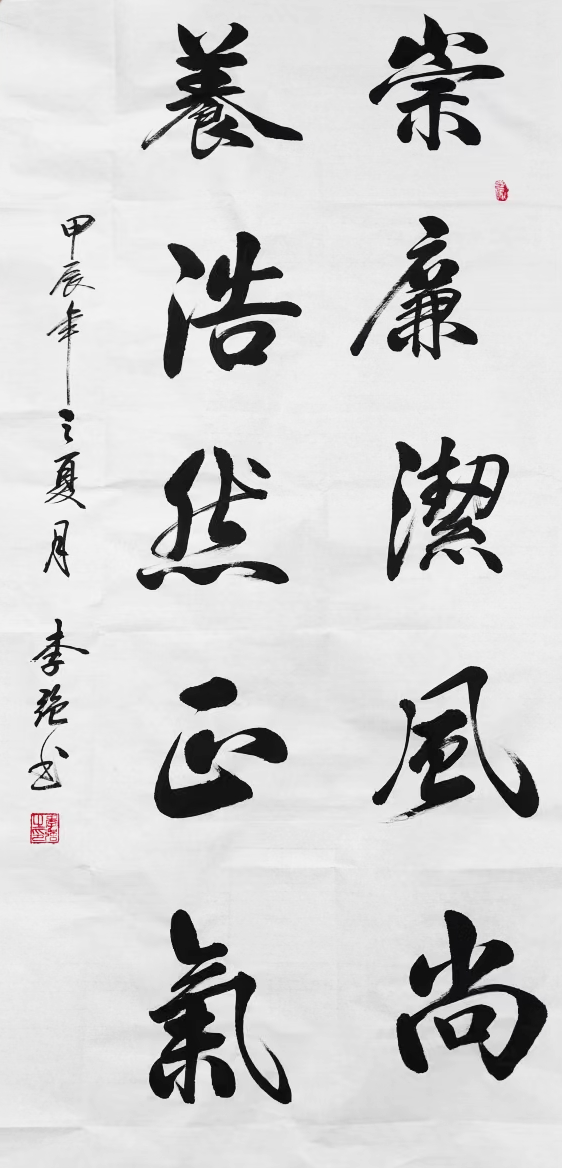 崇廉潔風尚
養浩然正氣
甲辰年之夏月 李强书